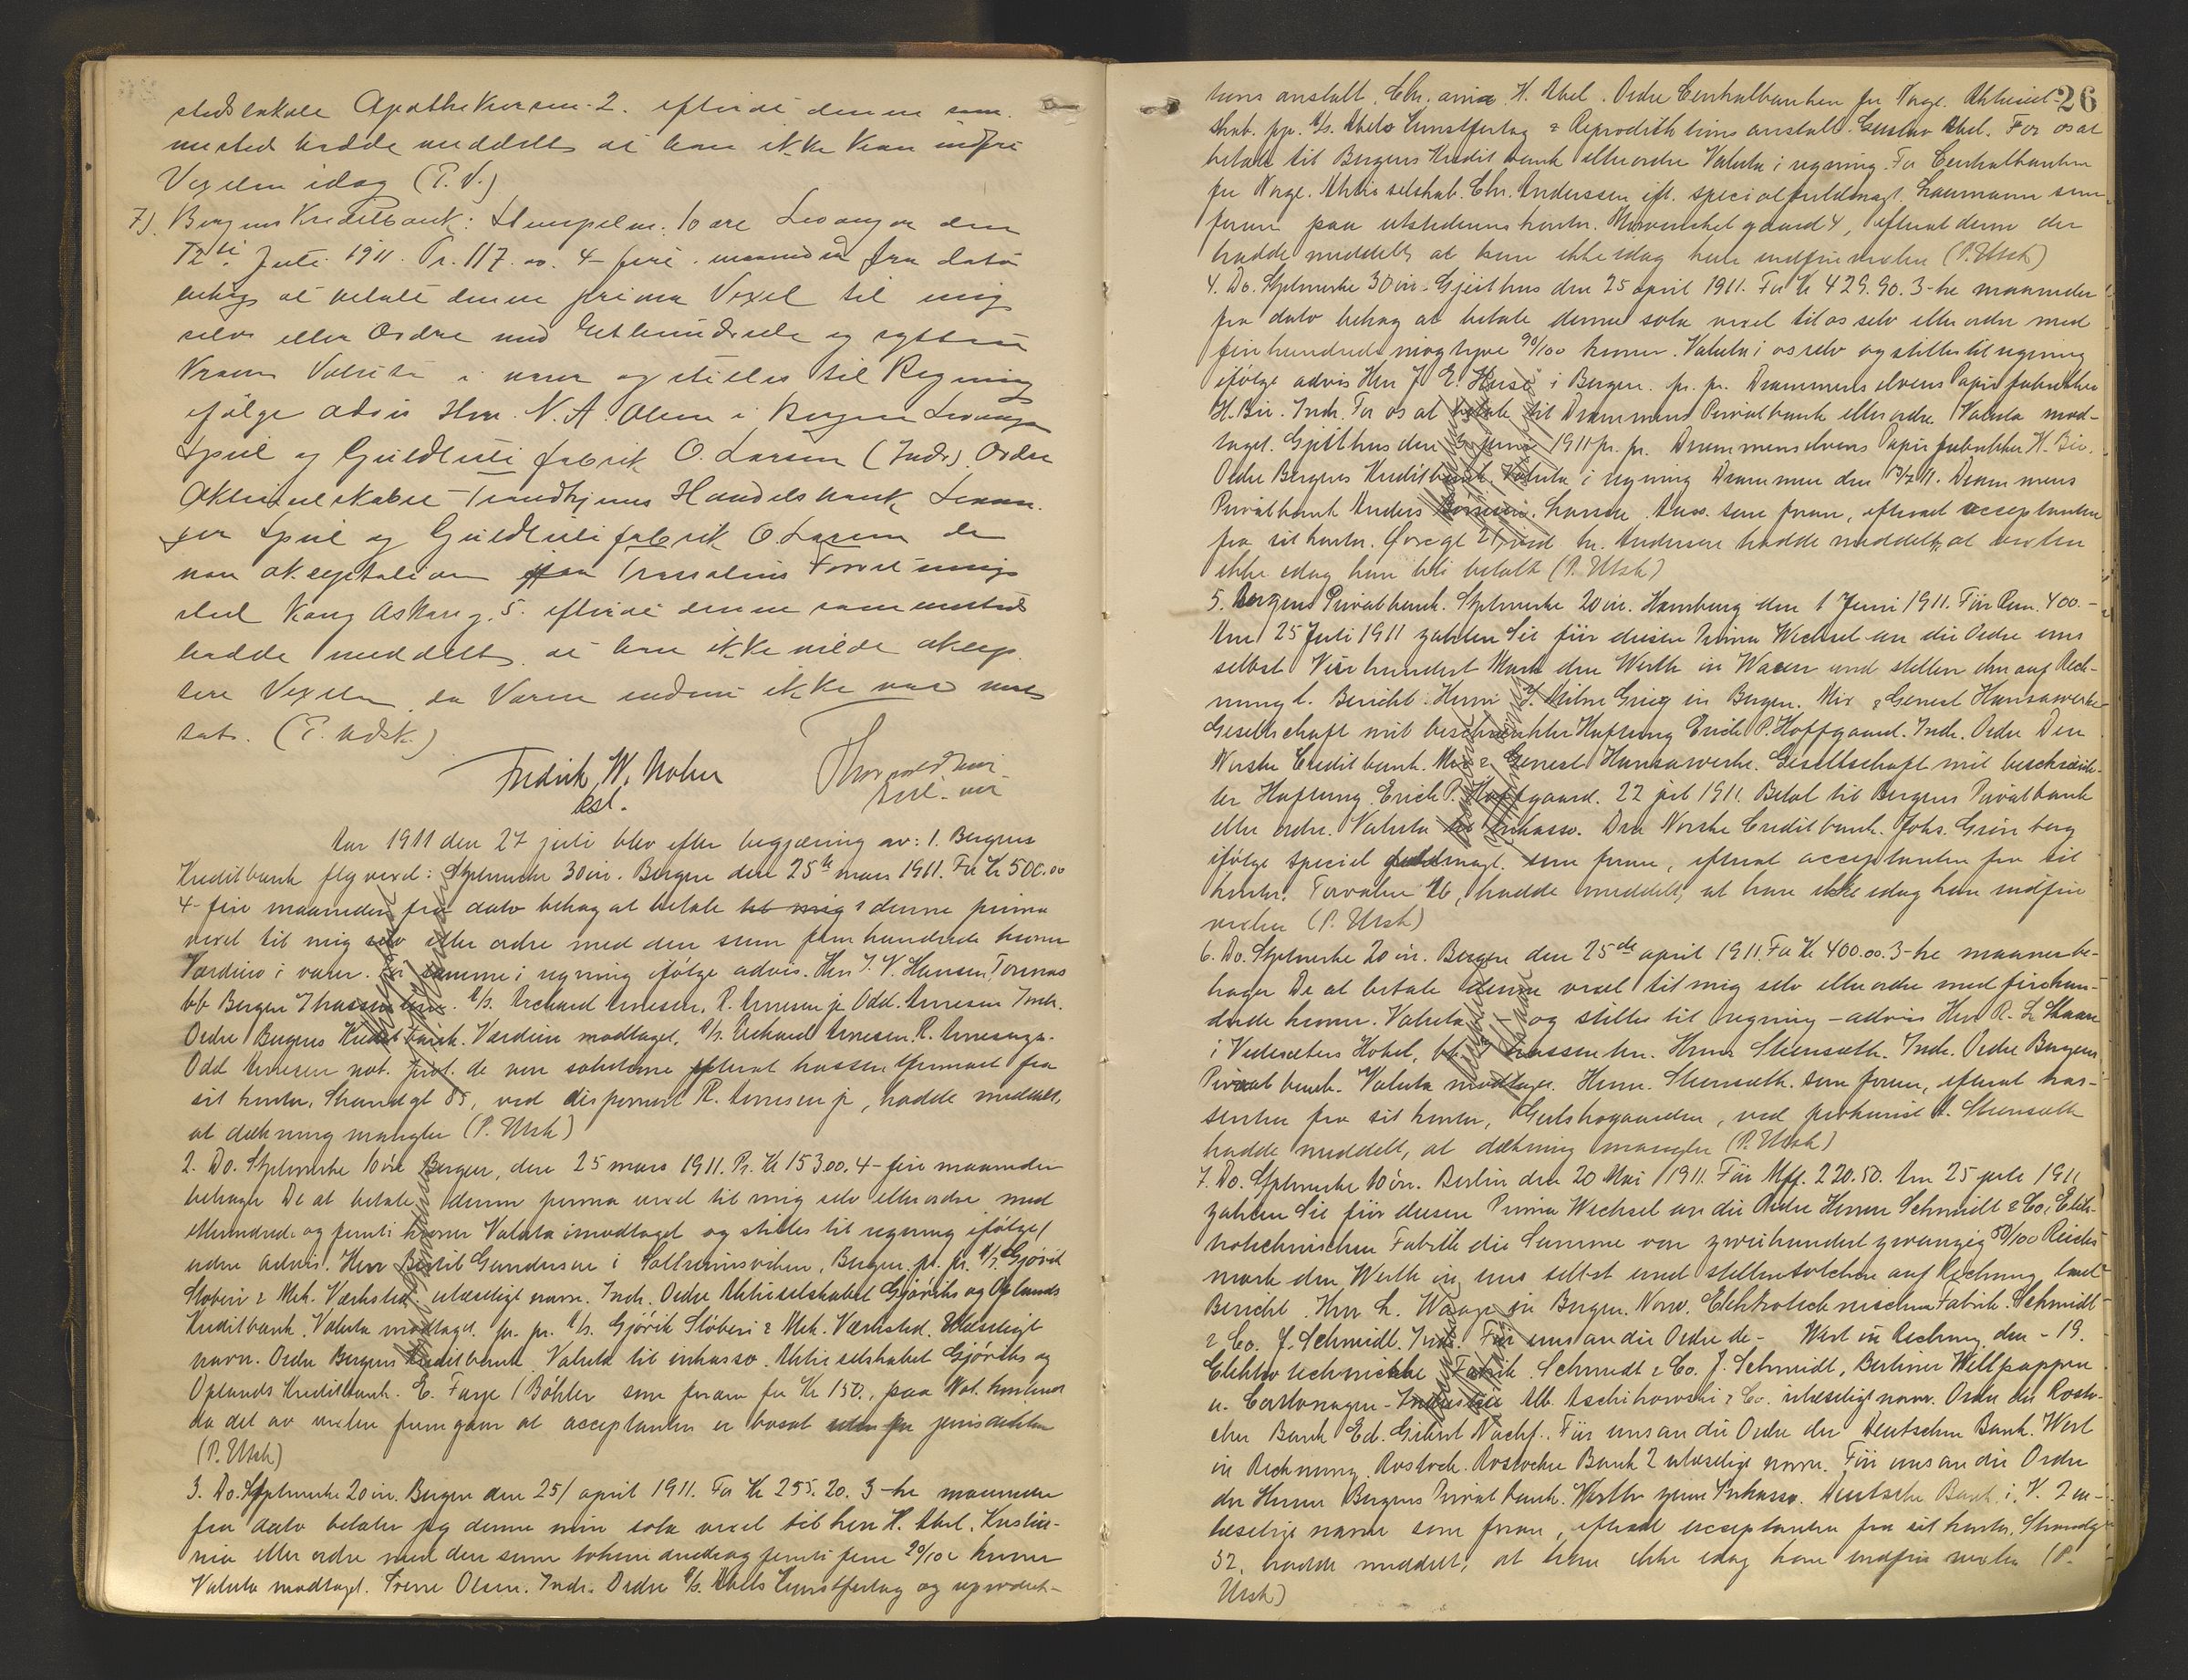 stedslokale Apothekersm. 2. efterat denne sam-
mested hadde meddelt at han ikke kan indfri
Vexelen idag (P. V.)
7). Bergens Kreditbank: Stempelm. 10 øre Levanger den
12te Juli 1911. Pr. 117.00. 4 - fire maaneder fra dato
behag at betale denne prima Vexel til mig
selv eller Ordre med Ethundrede og sytten
Kroner Valuta i varer og stilles til Regning
ifølge advis Herr N. A. Olsen i Bergen Levanger
Speil og Guldlistefabrik O. Larsen (Indr.) Ordre
Aktieselskabet Trondhjems Handelsbank Levan-
ger Speil og Guldlistefabrik O. Larsen
non akceptation paa Trassatens Forretnings
sted Kong Oskarsg. 5. efterat denne sammesteds
hadde meddelt at han ikke vilde aksep-
tere Vexelen, da Varen endnu ikke var mot-
tat. (P. Udsk.)
Fredrik W.
cst.
Aar 1911 den 27 juli blev efter begjæring av: 1. Bergens
Kreditbank flg vexel: Stplmerke 30 øre. Bergen den 25de mars 1911. For Kr 500.00
4 - fire maaneder fra dato behag at betale til mig denne prima
vexel til mig selv eller ordre med den sum femhundrede kroner
Værdien i varer. samme i regning ifølge advis. Herr J. V. Hansen, Torvnæs
bb Bergen Trassenten: A/s. Richard Arnesen. R. Arnesen jr. Odd. Arnesen Indr.
Ordre Bergens Kreditbank. Værdien modtaget. A/s. Richard Arnesen. R. Arnesen jr.
Odd Arnesen not. prot. de non solutione efterat trassentfirmaet fra
sit kontor, Strandgt 85, ved disponent R. Arnesen jr, hadde meddelt,
at dækning mangler (P. Utsk)
2. Do. Stplmerke 10 øre Bergen, den 25 mars 1911. Pr. Kr 153.00. 4 - fire maaneder
behager De at betale denne prima vexel til mig selv eller ordre med
etthundrede og femti kroner Valuta imodtaget og stilles til regning ifølge
uden advis. Herr Bertil Gundersen i Solheimsviken, Bergen. pr. pr. A/s. Gjøvik
Støberi & Mek. Værksted. ulæseligt navn. Indr. Ordre Aktieselskabet Gjøviks og Oplands
Kreditbank. Valuta modtaget. pr. pr. A/s. Gjøvik Støberi & Mek. Værksted. Ulæseligt
navn. Ordre Bergens Kreditbank. Valuta til inkasso. Aktieselskabet Gjøviks og
Oplands Kreditbank. E. Farje / Bøhler som foran for Kr 150., paa Not. kontoret
da det av vexlen fremgaar at acceptanten er bosat utenfor jurisdiktionen
(P. Utsk)
3. Do. Stplmerke 20 øre. Bergen den 25/ april 1911. For Kr 255.20. 3 - tre maaneder
fra dato betaler jeg denne min sola vexel til herr H. Abel, Kristia-
nia eller ordre med den sum tohundredeog femti fem 20/100 kroner
Valuta modtaget. Sverre Olsen. Indr. Ordre A/s. Abels Kunstforlag og reprodukt-
26
tions anstalt, Chr.ania H. Abel. Ordre Centralbanken for Norge. Aktiesel-
skab. pp. A/s. Abels Kunstforlag & Reproduktions anstalt. Gustav Abel. For os at
betale til Bergens Kredit bank eller ordre Valuta i regning. For Centralbanken
for Norge. Aktieselskab. Chr. Anderssen ift. specialfuldmagt. Laumann som
foran paa utstederens kontor. 4, efterat denne der
hadde meddelt at han ikke idag kan indfri vexlen (P. Utsk)
4. Do. Stplmerke 30 øre. Gjeithus den 25 april 1911. For Kr 429.90. 3 - tre maaneder
fra dato behag at betale denne sola vexel til os selv eller ordre med
firehundrede niogtyve 90/100 kroner. Valuta i os selv og stilles til regning
ifølge advis Herr J. E. i Bergen. pr. pr. Drammenselvens Papirfabrikker
H. Bie. Indr. For os at betale til Drammens Privatbank eller ordre. Valuta mod-
taget. Gjeithus den 3 juni 1911 pr. pr. Drammenselvens Papirfabrikker H. Bie.
Ordre Bergens Kreditbank. Valuta i regning Drammen den 13/7 11. Drammens
Privatbank Anders Larsen. Ass. som foran, efterat acceptanten
fra sit kontor. 21, ved hr. Andersen hadde meddelt, at vexlen
ikke idag kan bli betalt (P. Utsk)
5. Bergens Privatbank. Stplmerke 20 øre. Hamburg den 1 Juni 1911. Für Rm. 400.-
Am 25 Juli 1911 zahlen Sie für diesen Prima Wechsel an die Ordre uns
selbst Vier hundert Mark den Werth in Waren und stellen ihn auf Rech-
nung l. Bericht. Herrn J. Milne Grieg in Bergen. Mix & Genest Hansawerke
Gesellschaft mit beschränkter Haftung Erich P. Hoffgaard. Indr. Ordre Den
Norske Creditbank. Mix & Genest Hansawerke. Gesellschaft mit beschränk-
ter Haftung. Erich P. Hoffgaard. 22 juli 1911. Betal til Bergens Privatbank
eller ordre. Valuta til inkasso. Den Norske Creditbank. Johs. Grønberg
ifølge speciel fuldmagt. som foran, efterat acceptanten fra sit
kontor. Torvalm. 16, hadde meddelt, at han ikke idag kan indfri
vexlen (P. Utsk)
6. Do. Stplmerke 20 øre. Bergen den 25de april 1911. For Kr 400.00. 3 - tre maaner be-
hager De at betale denne vexel til mig selv eller ordre med firehun-
drede kroner. Valuta - og stilles til regning - advis Herr R. L. Skaare
i Videsæters Hotel, bb trassenten. Henr. Steensæth. Indr. Ordre Bergens
Privatbank. Valuta modtaget. Henr. Steensæth. som foran, efterat tras-
senten fra sit kontor, , ved prokurist A. Steensæth
hadde meddelt, at dækning mangler (P. Utsk)
7. Do. Stplmerke 10 øre. Berlin den 20 Mai 1911. Für Mk. 220.50. Am 25 juli 1911
zahlen Sie für diesen Prima Wechsel an die Ordre Herren Schmidt & Co, Elek-
trotechnischen Fabrik die Summe von zweihundert zwanzig 50/100 Reichs
mark den Werth in uns selbst und stellen solchen auf Rechnung laut
Bericht. Herr L. Waage in Bergen. Norw. Elektrotechnischen Fabrik. Schmidt
& Co. J. Schmidt. Indr. Für uns an die Ordre de - Wert in Rechnung den - 19.
Elektrotechnische Fabrik. Schmidt & Co. J. Schmidt, Berliner Wellpappen
u. Cartonagen - Industrie Alb. Aschikowski & Co. ulæseligt navn. Ordre der Rosto-
cker Bank Ed. Nachf. Für uns an die Ordre der Deutschen Bank. Wert
in Rechnung. Rostock. Rostocker Bank 2 ulæselige navne. Für uns an die Ordre
der Herren Bergens Privat bank. Werth zum Inkasso. Deutsche Bank. i. V. 2 u-
læselige navne som foran, efterat acceptanten fra sit kontor, Strandgt
52, hadde meddelt, at han ikke idag kan indfri vexlen (P.
Utsk)